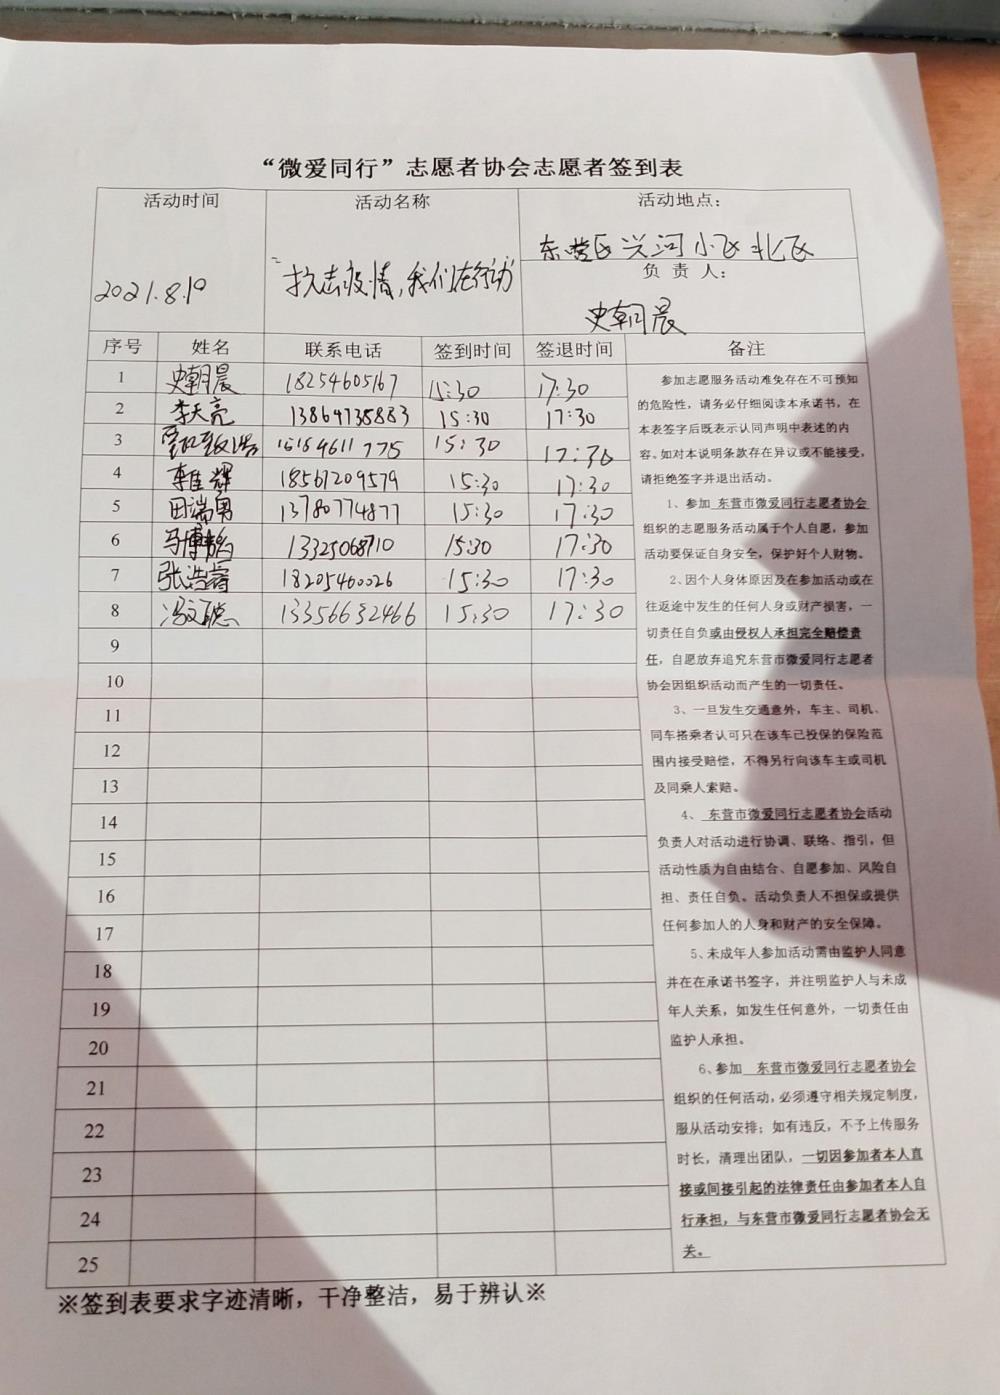 “微爱同行”志愿者协会志愿者签到表
活动时间 活动名称 活动地点：
东营区兴河小区北区
负责人：
2021.8.10 “抗击疫情，我们在行动”
史朝晨
序号 姓名 联系电话 签到时间 签退时间 备注
1 史朝晨 18254605167 15:30 17:30
2 李天亮 13864735883 15:30 17:30
3 15:30 17:30
4 李佳辉 18567209579 15:30 17:30
5 田端勇 13780774877 15:30 17:30
6 马博韬 13325068710 15:30 17:30
7 张浩 18205460026 15:30 17:30
8 冯文聪 13356632466 15:30 17:30
9
10
11
12
13
14
15
16
17
18
19
20
21
22
23
24
25
参加志愿服务活动难免存在不可预知
的危险性，请务必仔细阅读本承诺书，在
本表签字后既表示认同声明中表述的内
容。如对本说明条款存在异议或不能接受，
请拒绝签字并退出活动。
1、参加 东营市微爱同行志愿者协会
组织的志愿服务活动属于个人自愿，参加
活动要保证自身安全，保护好个人财物。
2、因个人身体原因及在参加活动或在
往返途中发生的任何人身或财产损害，一
切责任自负或由侵权人承担完全赔偿责
任，自愿放弃追究东营市微爱同行志愿者
协会因组织活动而产生的一切责任。
3、一旦发生交通意外，车主、司机、
同车搭乘者认可只在该车已投保的保险范
围内接受赔偿，不得另行向该车主或司机
及同乘人索赔。
4、 东营市微爱同行志愿者协会活动
负责人对活动进行协调、联络、指引，但
活动性质为自由结合、自愿参加、风险自
担、责任自负。活动负责人不担保或提供
任何参加人的人身和财产的安全保障。
5、未成年人参加活动需由监护人同意
并在在承诺书签字，并注明监护人与未成
年人关系，如发生任何意外，一切责任由
监护人承担。
6、参加 东营市微爱同行志愿者协会
组织的任何活动，必须遵守相关规定制度，
服从活动安排；如有违反，不予上传服务
时长，清理出团队，一切因参加者本人直
接或间接引起的法律责任由参加者本人自
行承担，与东营市微爱同行志愿者协会无
关。
※签到表要求字迹清晰，干净整洁，易于辨认※